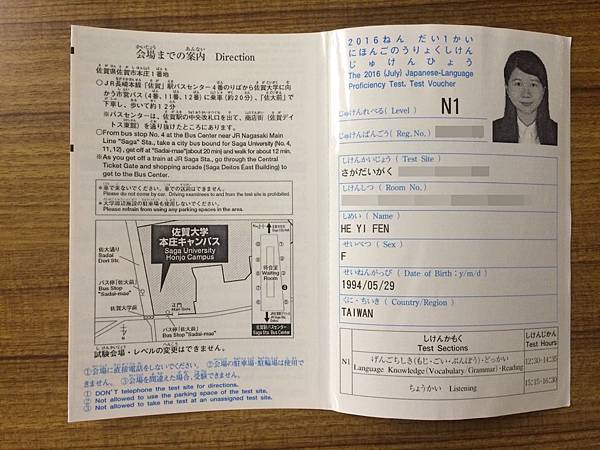 会場までの案内 Direction
佐賀県佐賀市本庄1番地
○JR長崎本線「佐賀」駅バスセンター4番のりばから佐賀大学に向
かう市営バス(4番、11番、12番)に乗車(約20分)、「佐大前」で
下車し、歩いて約12分
※バスセンターは、佐賀駅の中央改札口を出て、商店街(佐賀デイ
トス東館)を通り抜けたところにあります。
○From bus stop No. 4 at the Bus Center near JR Nagasaki Main
Line "Saga" Sta., take a city bus bound for Saga University (No. 4,
11, 12) , get off at "Sadai-mae"(about 20 min) and walk for about 12 min.
※As you get off a train at JR Saga Sta., go through the Central
Ticket Gate and shopping arcade (Saga Deitos East Building) to
get to the Bus Center.
※車で来ないでください。車での送迎はできません。
Please do not come by car. Driving examinees to and from the test site is prohibited.
※大学周辺施設の駐車場も使用しないでください。
Please refrain from using any parking spaces in the area.
佐賀大学
本庄キャンパス
Saga University
Honjo Campus
佐大通り
Sadai
Dori Str.
バス停(佐大前)
Bus Stop
"Sadai-mae"
佐賀大学前
正門
Main Gate
バス停(佐大前)
Bus Stop "Sadai-mae"
待合室
Waiting
Room
佐賀駅バスセンター
Saga Sta. Bus Center
試験会場・レベルの変更はできません。
①会場に直接電話をしないでください。 ②会場の駐車場・駐輪場は使用で
きません。 ③会場を間違えた場合、受験できません。
① DON'T telephone the test site for directions.
② Not allowed to use the parking space of the test site.
③ Not allowed to take the test at an unassigned test site.
2016ねん だい1かい
にほんごのうりょくしけん
じゅけんひょう
The 2016 (July) Japanese-Language
Proficiency Test, Test Voucher
じゅけんれべる( Level ) N1
じゅけんばんごう( Reg. No.)
しけんかいじょう( Test Site )
さがだいがく
しけんしつ ( Room No.)
しめい ( Name )
HE YI FEN
せいべつ ( Sex )
F
せいねんがっぴ ( Date of Birth : y/m/d )
1994/05/29
くに・ちいき ( Country/Region )
TAIWAN
しけんかもく
Test Sections
しけんじかん
Test Hours
N1
げんごちしき(もじ・ごい・ぶんぽう)・どっかい
Language Knowledge (Vocabulary / Grammar)・Reading
12:30-14:35
ちょうかい Listening
15:15-16:30